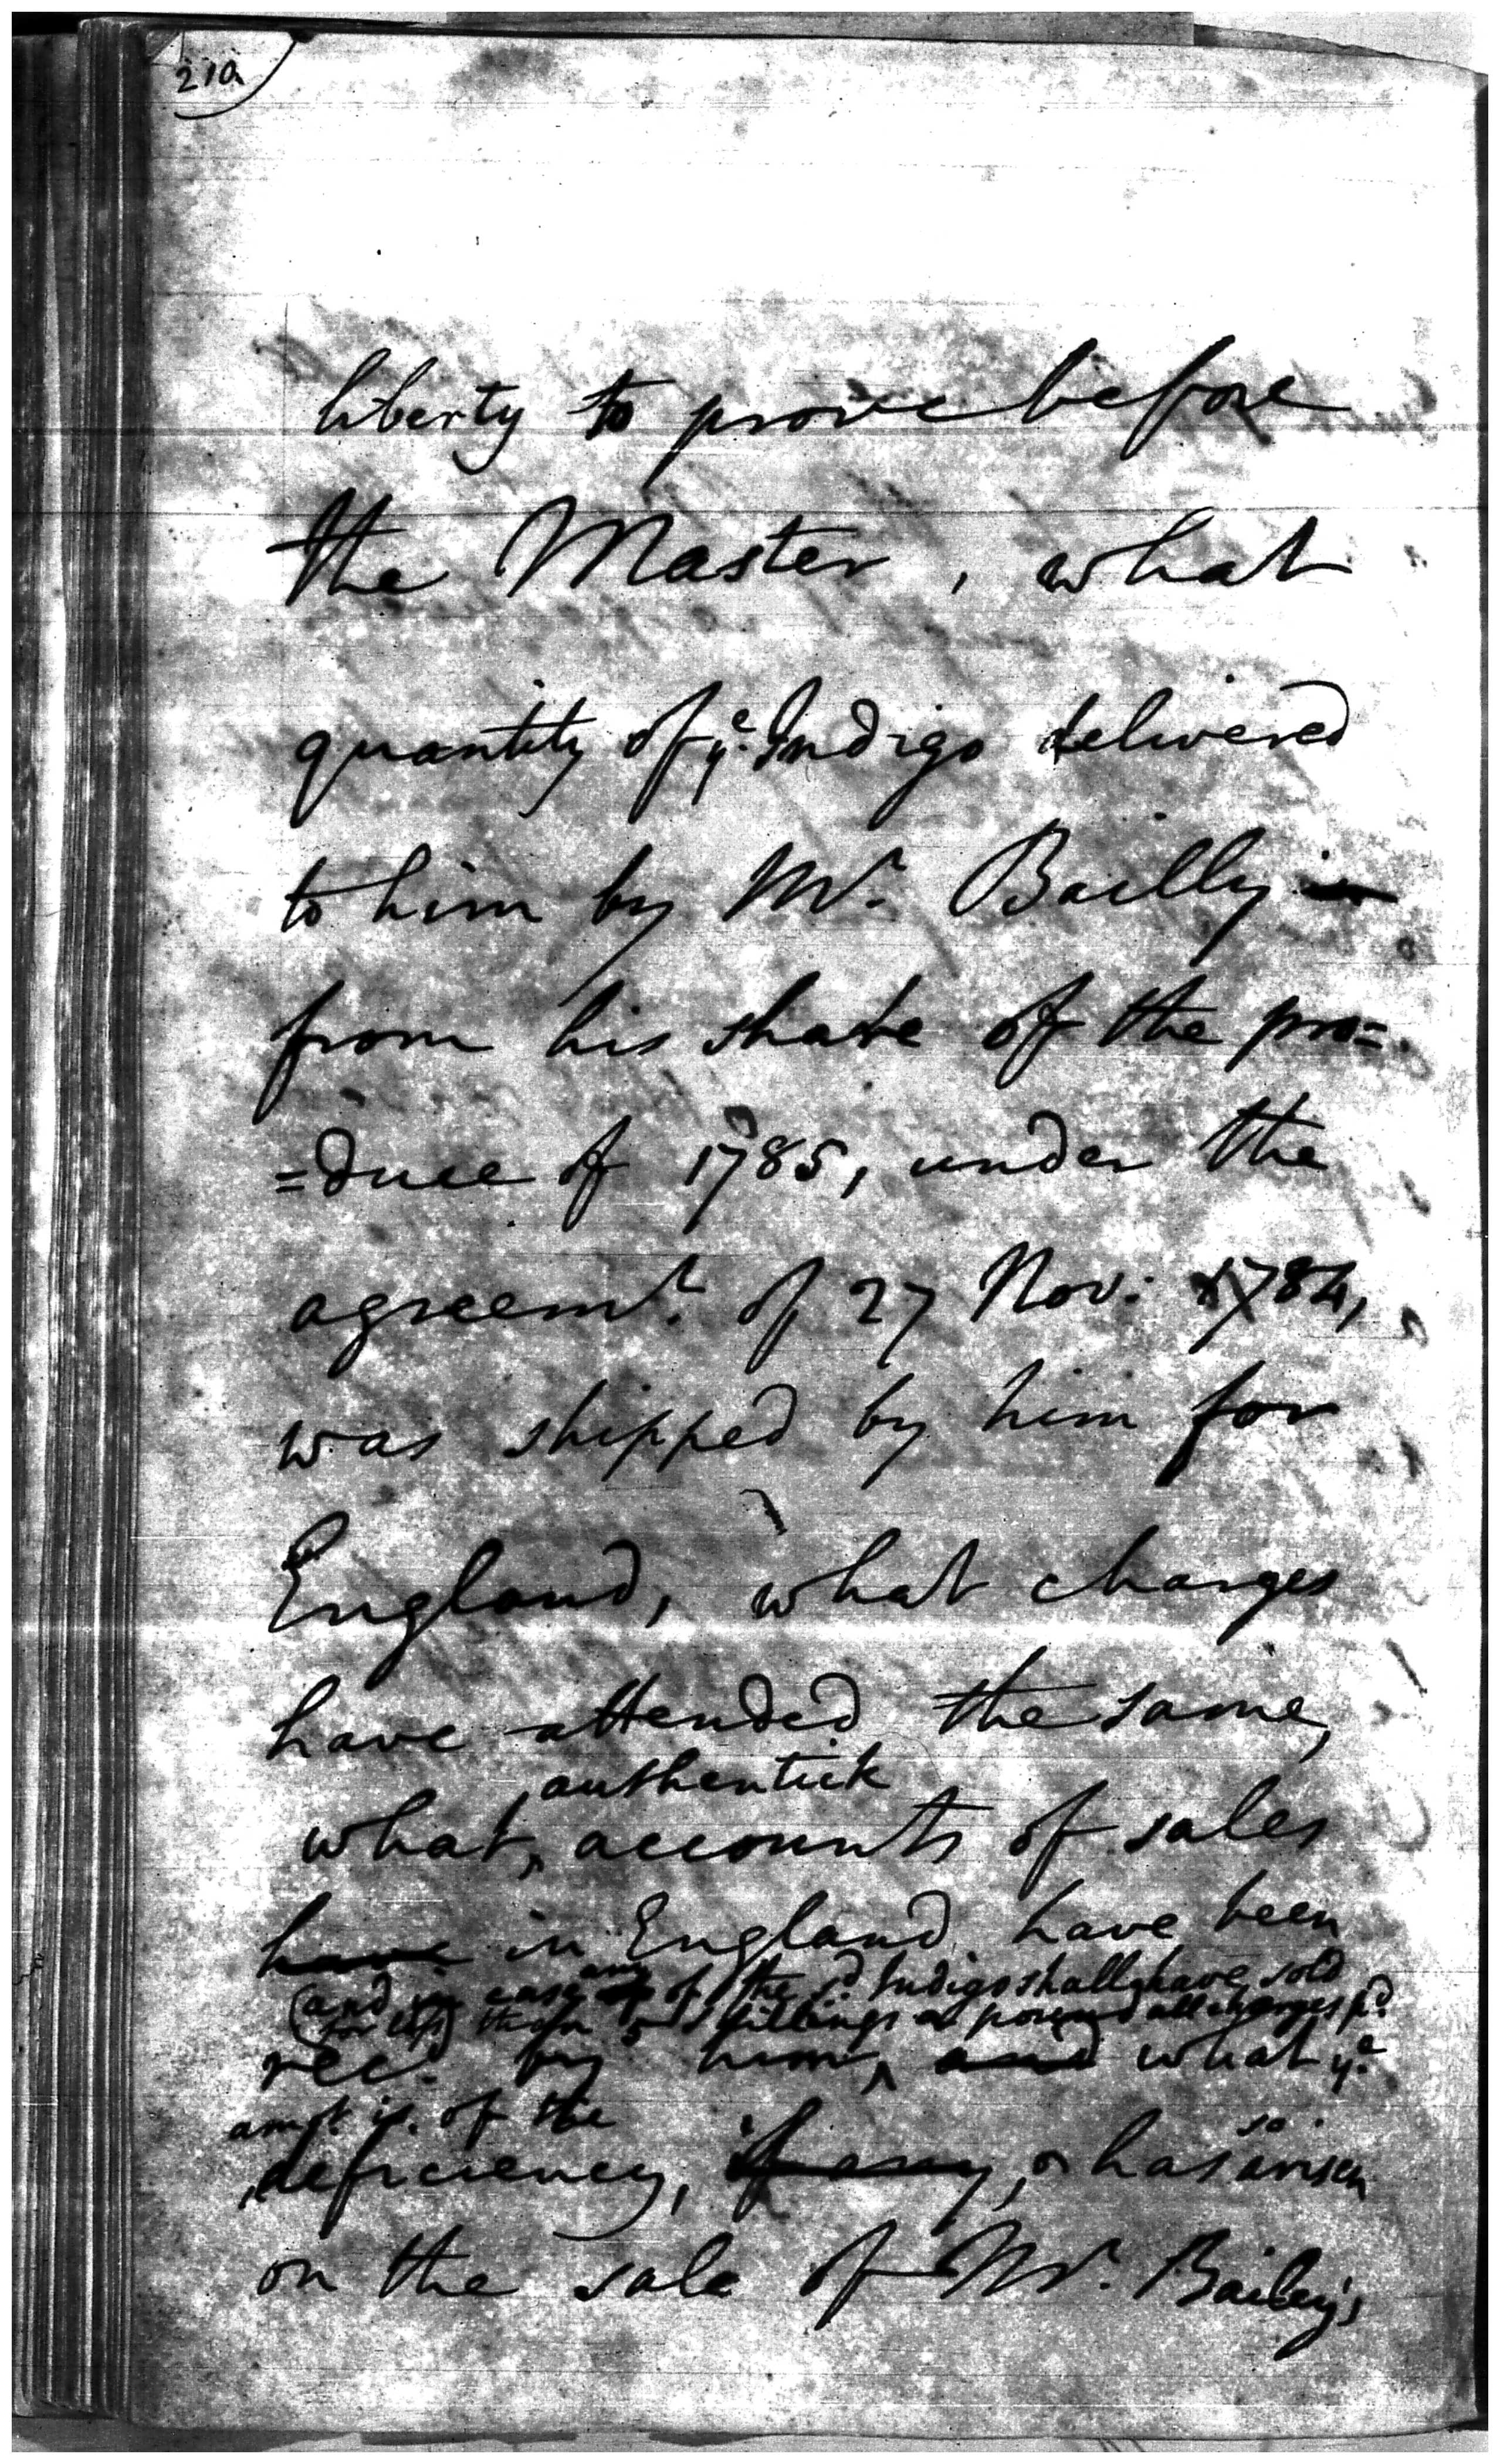 210
liberty to prove before
the Master, what
quantity of ye. Indigo delivered
to him by Mr. Bailly
from his share of the pro=
=duce of 1785, under the
agreemt. of 27 Nov: 1784,
was shipped by him for
England, what charges
have attended the same,
authentick
what, accounts of sales
have in England have been
any
(and in case of the sd. Indigo shall have sold
for less) than 5 shillings a pound all charges pd.
recd. by him, and what ye.
amot. is. of the
so
deficiency, if any, has arisen
on the sale of Mr. Bailey's